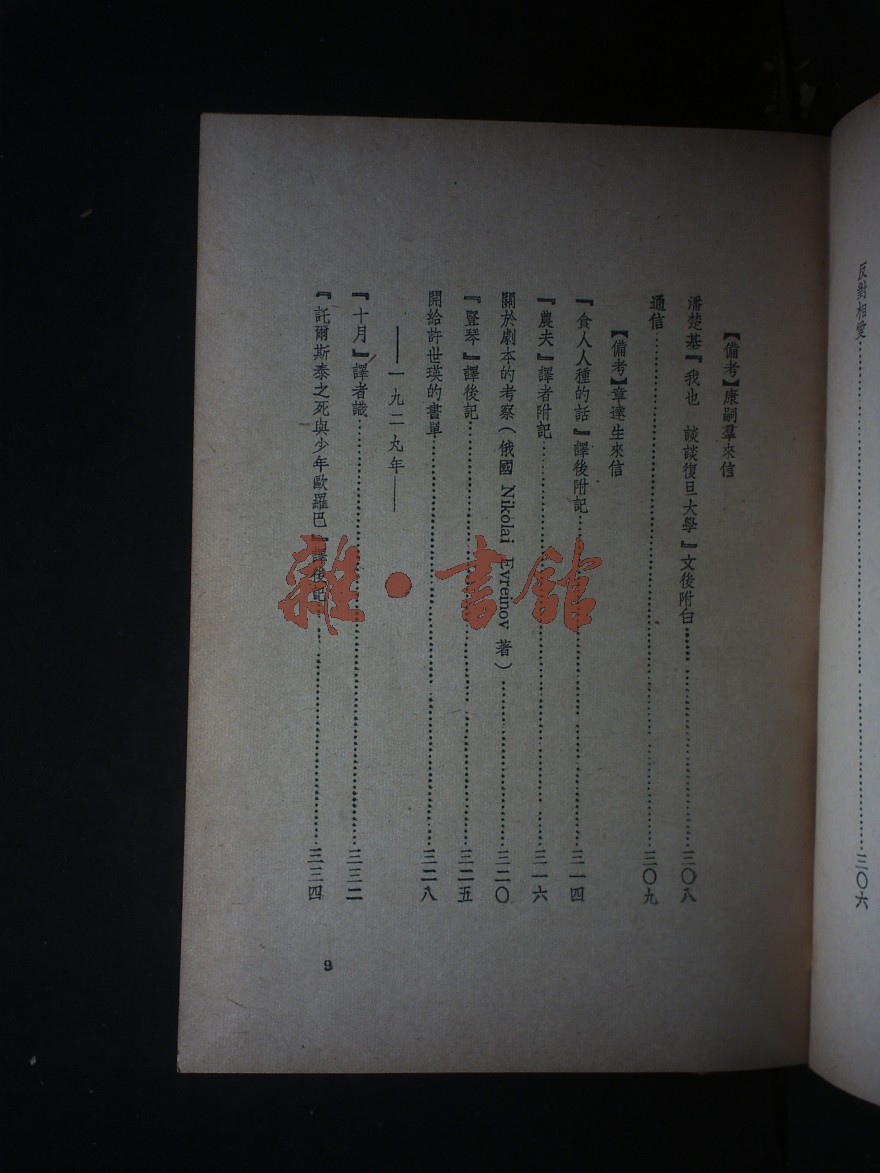 反對相愛……三〇六
【備考】康嗣羣來信
潘楚基『我也　談談復旦大學』文後附白……三〇八
通信……三〇九
【備考】章達生來信
『食人人種的話』譯後附記……三一四
『農夫』譯者附記……三一六
關於劇本的考察（俄國 Nikolai Evreinov 著）……三二〇
『豎琴』譯後記……三二五
開給許世瑛的書單……三二八
——一九二九年——
『十月』譯者識……三三二
『託爾斯泰之死與少年歐羅巴』譯後記……三三四
9
雜·書館